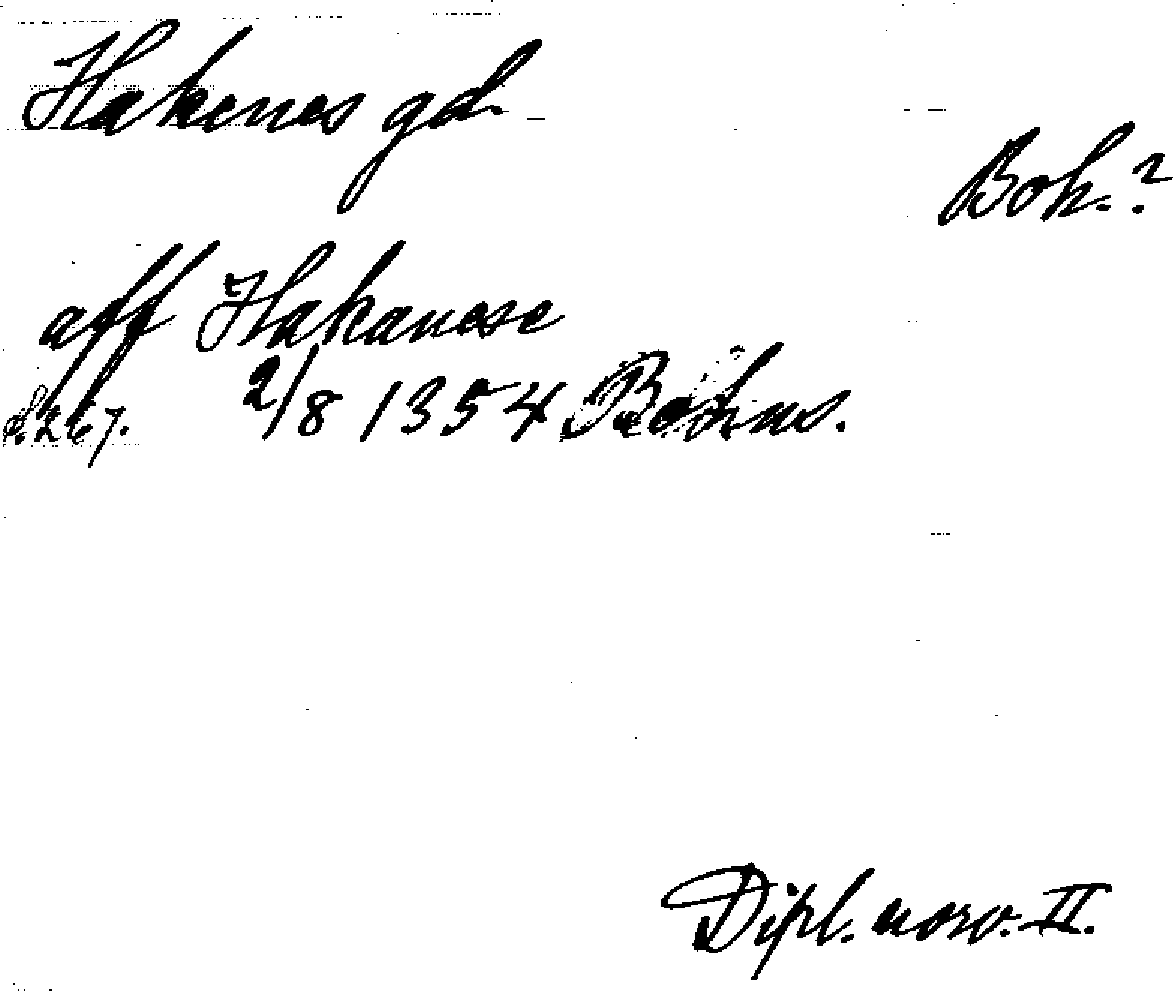 Hakenes gd.
Boh.?
aff Hakanese
s. 267. 2/8 1354 Bohus.
Dipl. norv. II.